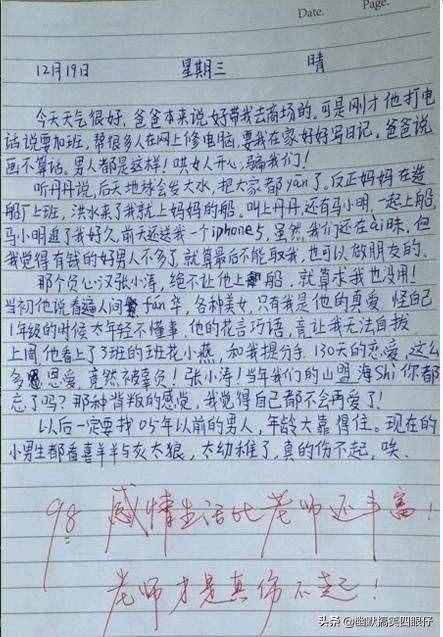 Date. Page.
12月19日 星期三 晴
今天天气很好,爸爸本来说好带我去商场的,可是刚才他打电
话说要加班,帮很多人在网上修电脑,要我在家好好写日记,爸爸说
画不算话,男人都是这样!哄女人开心,骗我们!
听丹丹说,后天地球会发大水,把大家都yān了,反正妈妈在造
船厂上班,洪水来了我就上妈妈的船。叫上丹丹,还有马小明,一起上船,
马小明追了我好久,前天还送我一个iphone5,虽然我们还在ài昧,但
我觉得有钱的好男人不多了,就算最后不能取我,也可以做朋友的。
那个负心汉张小涛,绝不让他上船,就算求我也没用!
当初他说看遍人间fán华,各种美女,只有我是他的真爱,怪自己
1年级的时候太年轻不懂事,他的花言巧语,竟让我无法自拔
上周他看上了3班的班花小燕,和我提分手,130天的恋爱,这么
多恩爱,竟然被辜负!张小涛!当年我们的山盟海Shì你都
忘了吗?那种背叛的感觉,我觉得自己都不会再爱了!
以后一定要找05年以前的男人,年龄大靠得住。现在的
小男生都看喜羊羊与灰太狼,太幼稚了,真的伤不起,唉。
98 感情生活比老师还丰富!
老师才是真伤不起!
头条@幽默搞笑四眼仔